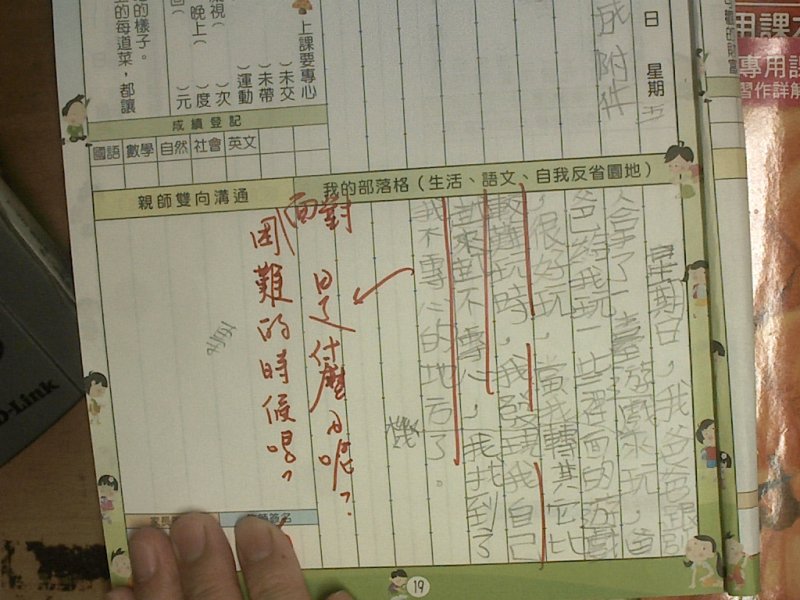 用課本
專用課
習作詳解
日 星期五
附件
上課要專心
）未交
）未帶
）運動
）次
晚上（ ）度
）元
的樣子。
的每道菜，都讓
成績登記
國語 數學 自然 社會 英文
我的部落格（生活、語文、自我反省園地）
親師雙向溝通
星期日，我爸爸跟別
了一臺遊戲來玩，
爸給我玩一些裡面的遊戲
，很好玩，當我轉其它比
較難玩時，我發現我自己
越來越不專心，我找到了
我不專心的地方了。
機
是什麼呢？
面對
困難的時候嗎？
D-Link
19